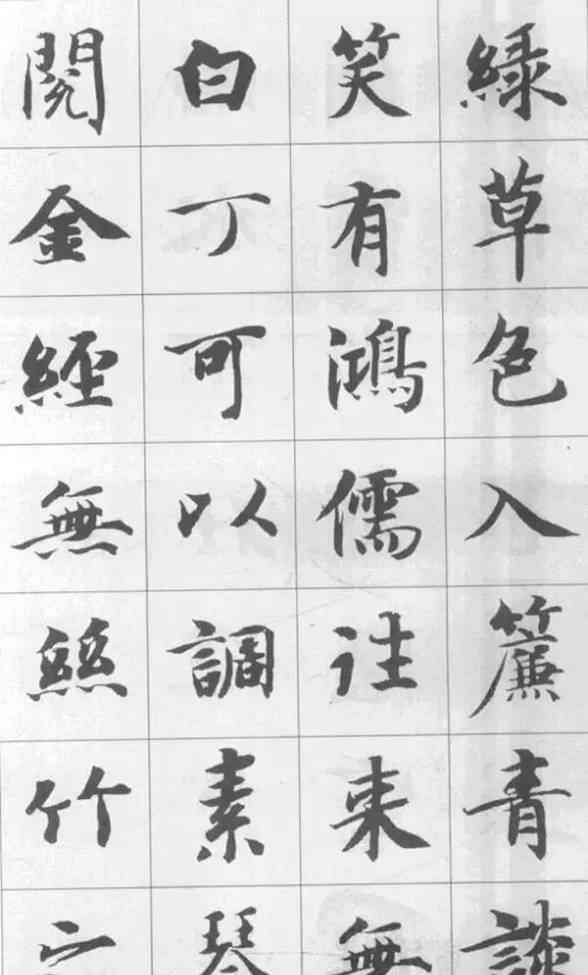 綠草色入簾青談
笑有鴻儒往来無
白丁可以調素琴
閱金經無絲竹之